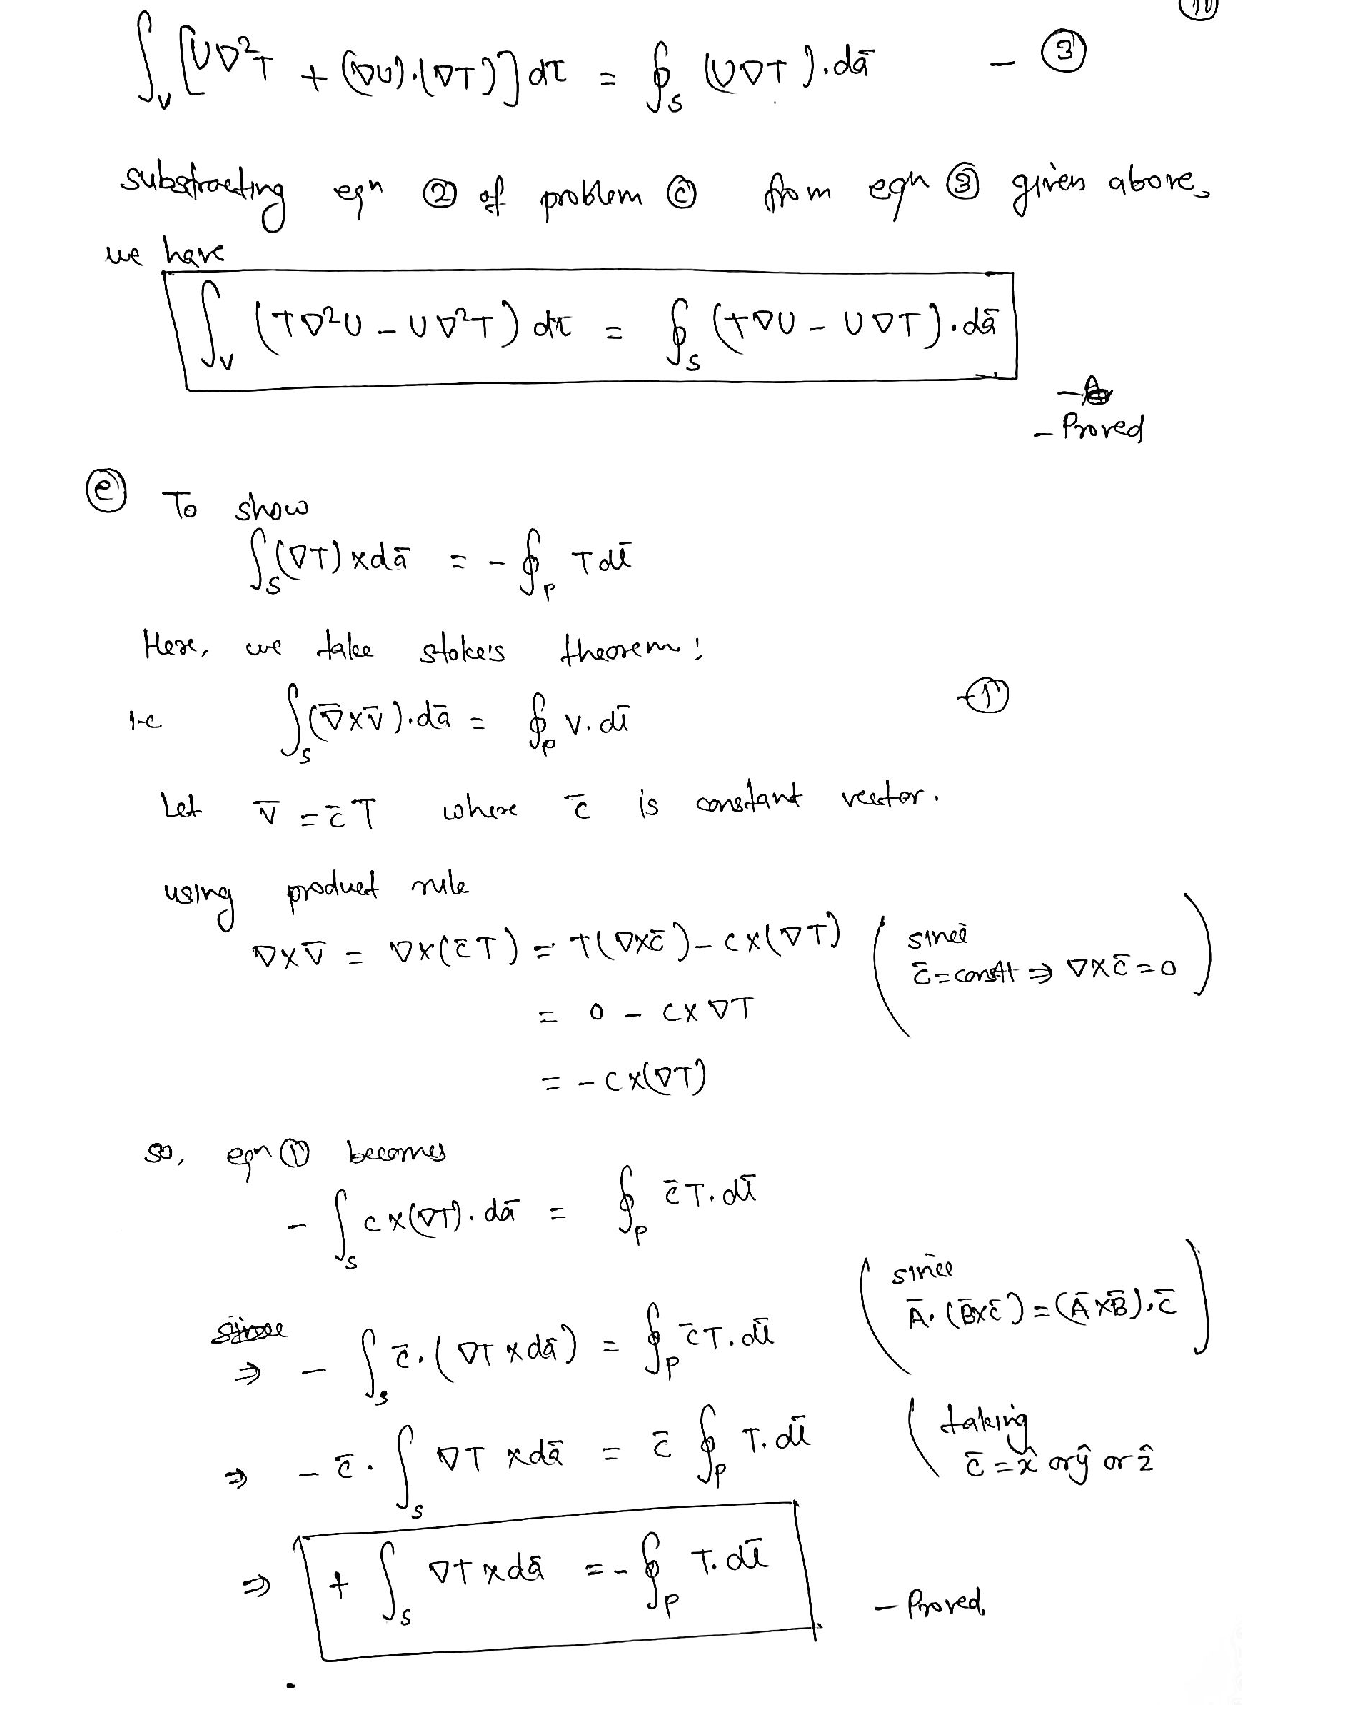 (11)
∫_V [U∇²T + (∇U).(∇T)] dτ = ∮_S (U∇T).dā — ③
substracting eqn ② of problem ⓒ from eqn ③ given above,
we have
∫_V (T∇²U – U∇²T) dτ = ∮_S (T∇U – U∇T).dā
– Proved
ⓔ To show
∫_S (∇T) x dā = – ∮_P T dl̄
Here, we take stoke's theorem:
i-e ∫_S (∇̄xv̄).dā = ∮_P v.dl̄ —①
Let v̄ = c̄T where c̄ is constant vector.
using product rule
∇xv̄ = ∇x(c̄T) = T(∇xc̄) – cx(∇T) (since c̄ = constt ⇒ ∇xc̄ = 0)
= 0 – cx∇T
= – cx(∇T)
so, eqn ① becomes
– ∫_S cx(∇T).dā = ∮_P c̄T.dl̄
⇒ – ∫_S c̄.(∇T x dā) = ∮_P c̄T.dl̄ (since Ā.(B̄xc̄) = (ĀxB̄).c̄)
⇒ – c̄. ∫_S ∇T x dā = c̄ ∮_P T.dl̄ (taking c̄ = x̂ or ŷ or ẑ
⇒ + ∫_S ∇T x dā = – ∮_P T.dl̄
– Proved.